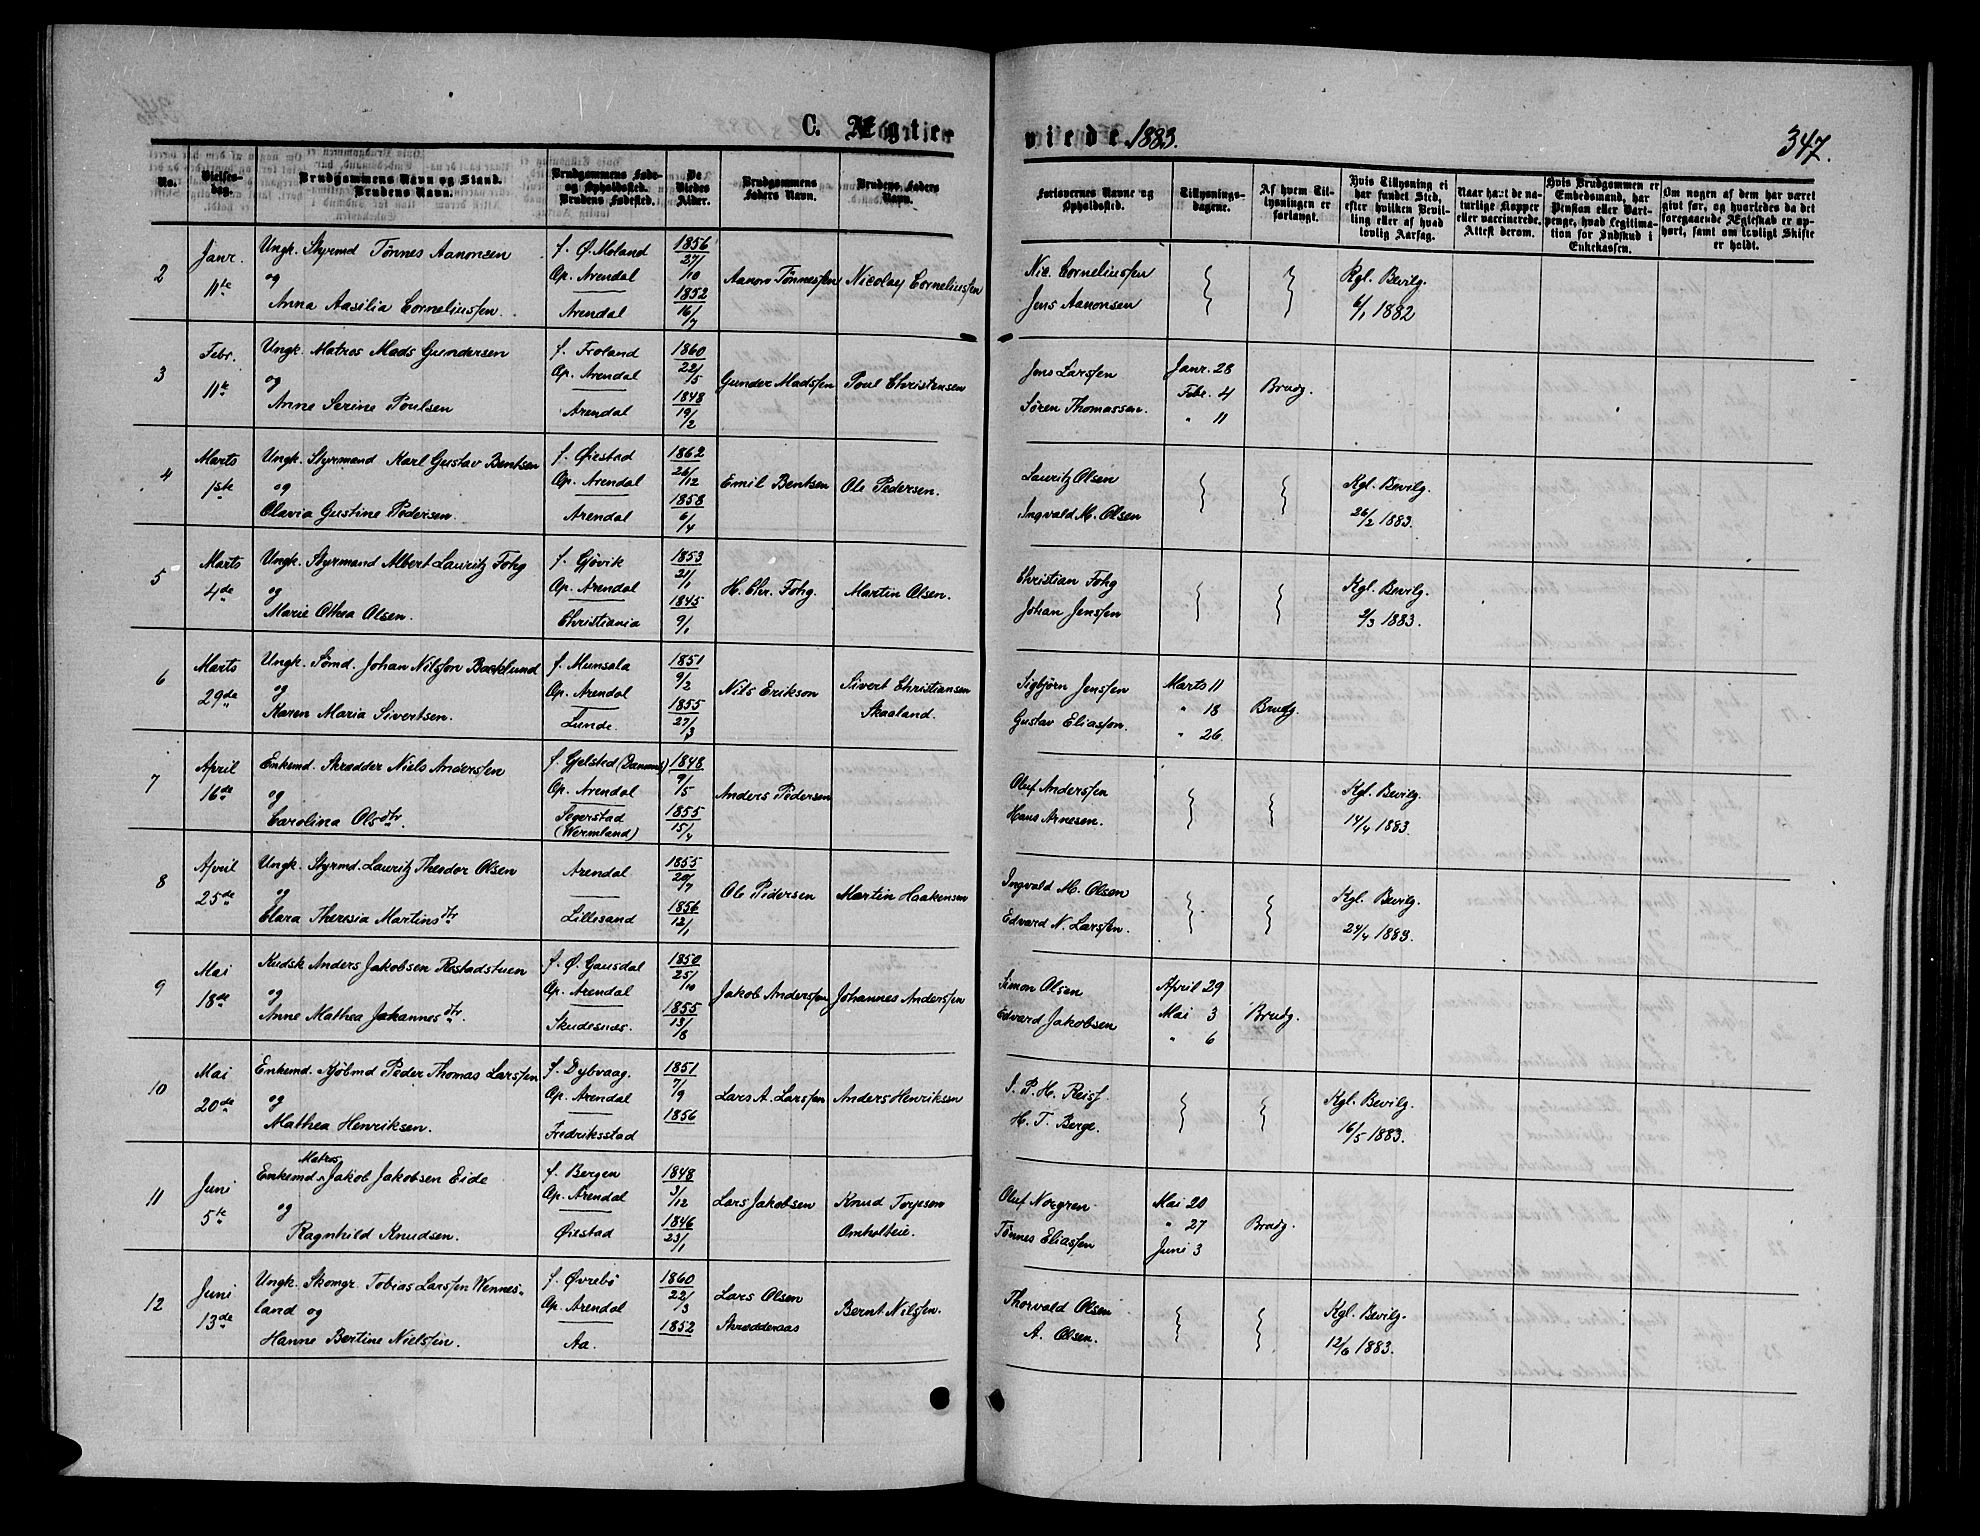 C. Ægte-
viede 1883.
347.
No.
Vielses-
dag.
Brudgommens Navn og Stand.
Brudens Navn.
Brudgommens Føde-
og Opholdssted.
Brudens Fødested.
De
Viedes
Alder.
Brudgommens
Faders Navn.
Brudens Faders
Navn.
Forlovernes Navne og
Opholdssted.
Tillysnings-
dagene.
Af hvem Til-
lysningen er
forlangt.
Hvis Tillysning ei
har fundet Sted,
efter hvilken Bevil-
ling eller af hvad
lovlig Aarsag.
Naar havt de na-
turlige Kopper
eller vaccinerede.
Attest derom.
Hvis Brudgommen er
Embedsmand, har
Pension eller Vart-
penge, hvad Legitima-
tion for Indskud i
Enkekassen.
Om nogen af dem har været
givt før, og hvorledes da det
foregaaende Ægteskab er op-
hørt, samt om lovligt Skifte
er holdt.
2
Janr.
11te
Ungk. Styrmd Tønnes Aanonsen
og
Anna Aasilia Corneliussen.
f. Ø. Moland
Op. Arendal
Arendal
1856
27/10
1852
16/7
Aanon Tønnessen
Nicolay Corneliussen
Nic. Corneliussen
Jens Aanonsen
Kgl. Bevilg.
6/1 1882
3
Febr.
11te
Ungk. Matros Mads Gundersen
og
Anne Serine Poulsen
f. Froland
Op. Arendal
Arendal
1860
22/5
1848
19/2
Gunder Madssen
Poul Christensen
Jens Larssen
Søren Thomassen.
Janr. 28
Febr. 4
" 11
Brudg.
4
Marts
1ste
Ungk. Styrmand Karl Gustav Bentsen
og
Olavia Gustine Pedersen.
f. Øiestad
Op. Arendal
Arendal
1862
26/12
1858
6/4
Emil Bentsen
Ole Pedersen.
Lauritz Olsen
Ingvald M. Olsen
Kgl. Bevilg.
26/2 1883.
5
Marts
4de
Ungk. Styrmand Albert Lauritz Fohg
og
Marie Othea Olsen.
f. Gjøvik
Op. Arendal
Christiania
1853
21/1
1845
9/1
H. Chr. Fohg.
Martin Olsen.
Christian Fohg
Johan Jenssen
Kgl. Bevilg.
2/3 1883.
6
Marts
29de
Ungk. Sømd. Johan Nilsson Backlund
og
Karen Maria Sivertsen.
f. Munsala
Op. Arendal
Lunde.
1851
9/2
1855
27/3
Nils Erikson
Sivert Christiansen
Skaaland.
Sigbjørn Jenssen
Gustav Eliasson.
Marts 11
" 18
" 26.
Brudg.
7
April
16de
Enkemd. Skrædder Niels Anderssen
og
Carolina Olsdtr.
f. Gjelsted (Danmark)
Op. Arendal
Segerstad
(Wermland)
1848
9/5
1855
15/4
Anders Pedersen
Oluf Anderssen
Hans Arnesen.
Kgl. Bevilg.
14/4 1883.
8
April
25de
Ungk. Styrmd. Lauritz Theodor Olsen
og
Clara Theresia Martinsdtr
Arendal
Lillesand
1855
20/7
1856
12/1
Ole Pedersen
Martin Haakensen
Ingvald M. Olsen
Edvard N. Larssen.
Kgl. Bevilg.
24/4 1883.
9
Mai
18de
Kudsk Anders Jakobsen Rostadstuen
og
Anne Mathea Johannesdtr.
f. Ø. Gausdal
Op. Arendal
Skudesnæs.
1850
25/10
1855
13/8
Jakob Anderssen
Johannes Anderssen
Simon Olsen
Edvard Jakobsen
April 29
Mai 3
" 6
Brudg.
10
Mai
20de
Enkemd. Kjøbmd Peder Thomas Larssen
og
Mathea Henriksen.
f. Dybvaag.
Op. Arendal
Fredriksstad
1851
7/9
1856
Lars A. Larssen
Anders Henriksen
J. P. H. Reiss.
H. T. Berge.
Kgl. Bevilg.
16/5 1883.
11
Juni
5te
Matros
Enkemd. Jakob Jakobsen Eide
og
Ragnhild Knudsen.
f. Bergen
Op. Arendal
Øiestad
1848
3/12
1846
23/1
Lars Jakobsen
Knud Torjesen
Omholteie.
Oluf Norgren
Tønnes Eliassen
Mai 20
" 27
Juni 3
Brudg.
12
Juni
13de
Ungk. Skomgr. Tobias Larssen Wennes-
land og
Hanne Bertine Nielssen.
f. Øvrebø
Op. Arendal
Aa.
1860
22/3
1852
Lars Olsen
Skrædderaas
Bernt Nilssen.
Thorvald Olsen
A. Olsen.
Kgl. Bevilg.
12/6 1883.